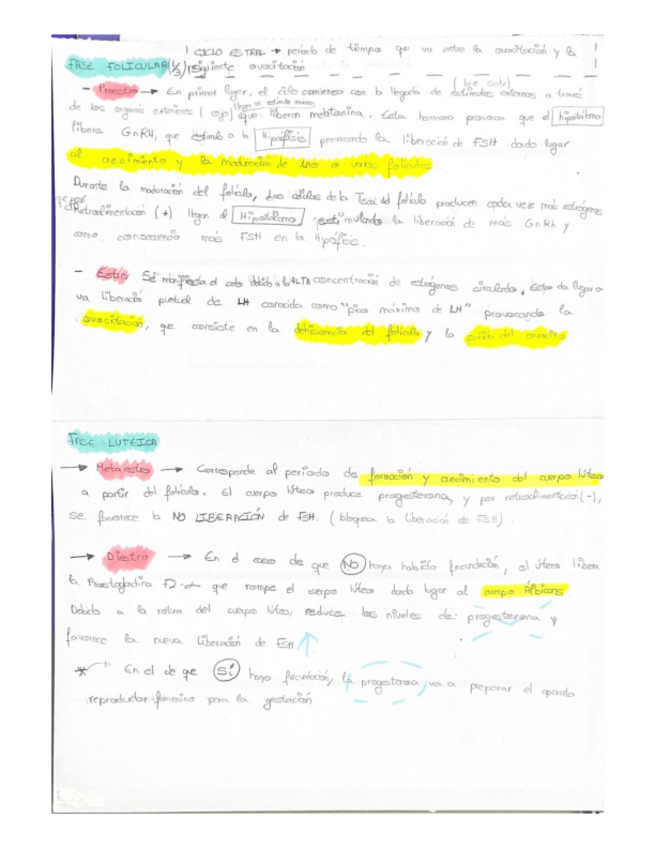 CICLO ESTRAL → periodo de tiempo que va entre la ovocitación y la
FASE FOLICULAR (1/3) siguiente ovocitación
- Proestro → En primer lugar, el ciclo comienza con la llegada de estímulos externos a través
de los órganos exteriores (ojo) que liberan melatonina. Esta hormona provocan que el hipotálamo
libera GnRH, que estimula a la Hipófisis provocando la liberación de FSH dando lugar
al crecimiento y la maduración de uno o varios folículos
Durante la maduración del folículo, las células de la Teca del folículo producen cada vez más estrógenos
Retroalimentación (+) llegan al Hipotálamo estimulando la liberación de más GnRh y
como consecuencia más FSH en la Hipófisis.
- Estro Se manifiesta el celo debido a la ALTA CONCENTRACIÓN de estrógenos circulando, Esto da lugar a
una liberación puntual de LH conocida como "pico máximo de LH" provocando la
ovocitación, que consiste en la dehiscencia del folículo y la salida del ovocito
FASE LUTEICA
→ Metaestro → Corresponde al periodo de formación y crecimiento del cuerpo lúteo
a partir del folículo. El cuerpo lúteo produce progesterona, y por retroalimentación (-),
se favorece la NO LIBERACIÓN de FSH. (bloquea la liberación de FSH).
→ Diestro → En el caso de que NO haya habido fecundación, el útero libera
la Prostaglandina F2-α que rompe el cuerpo lúteo dando lugar al cuerpo Álbicans
Debido a la rotura del cuerpo lúteo, reduce los niveles de progesterona y
favorece la nueva liberación de FSH ↑
* En el de que SÍ haya fecundación, la progesterona va a preparar el aparato
reproductor femenino para la gestación